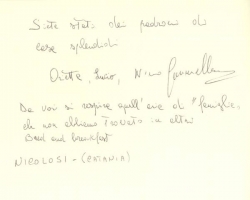 Siete stati dei padroni di
casa splendidi
Nino
Da voi si respira quell'aria di "famiglia"
che non abbiamo trovato in altri
Bed and breakfast
NICOLOSI - (CATANIA)